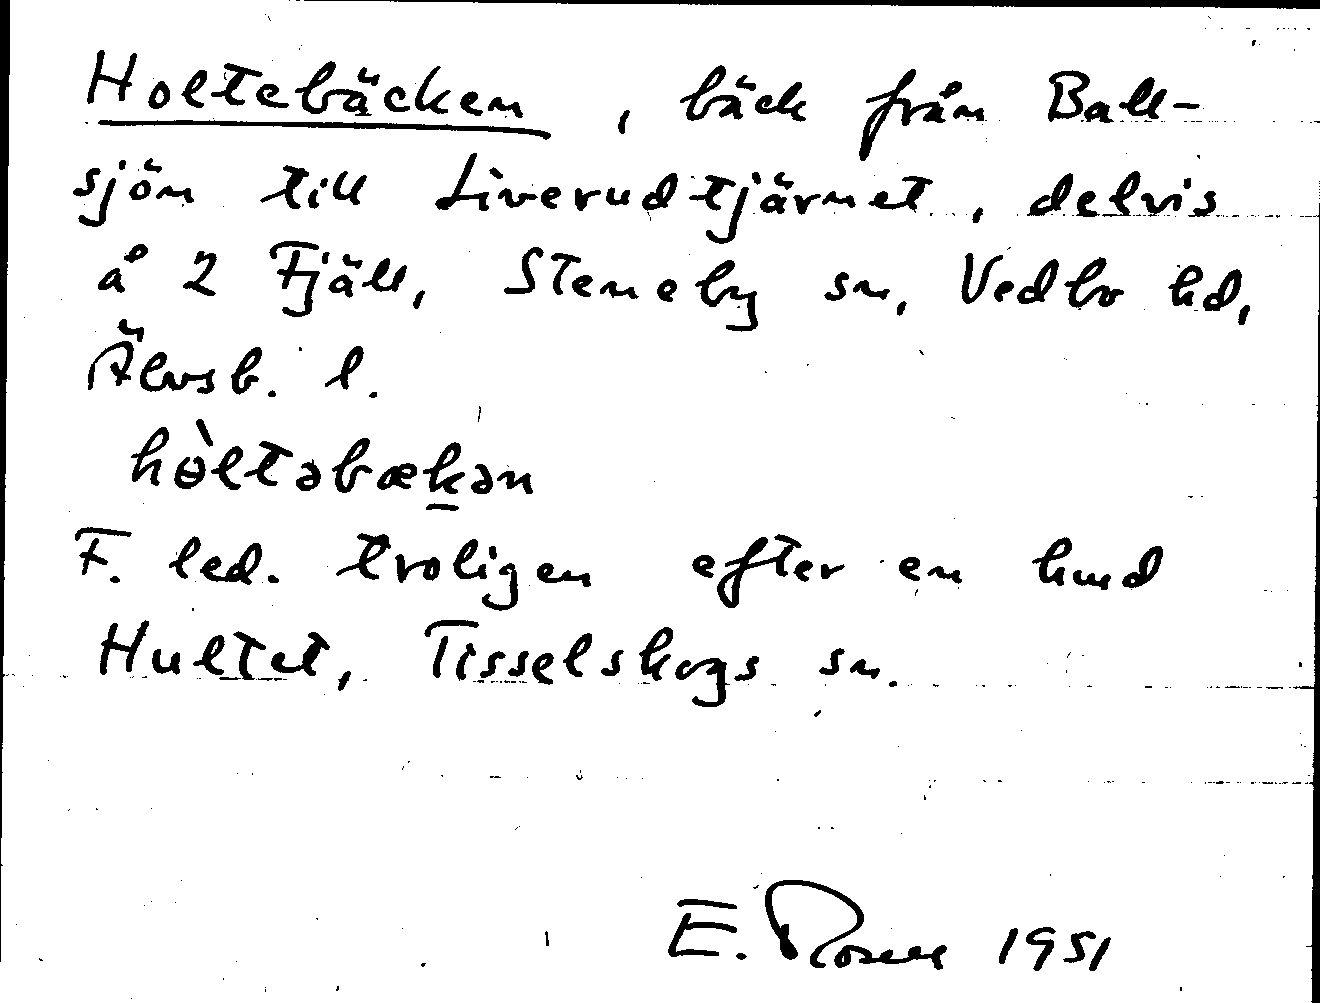 Holtebäcken, bäck från Ball-
sjön till Liverudtjärnet, delvis
å 2 Fjäll, Steneby sn, Vedbo hd,
Älvsb. l.
hòltəbækən
F. led. troligen efter en hmd
Hultet, Tisselskogs sn.
E. Rosell 1951